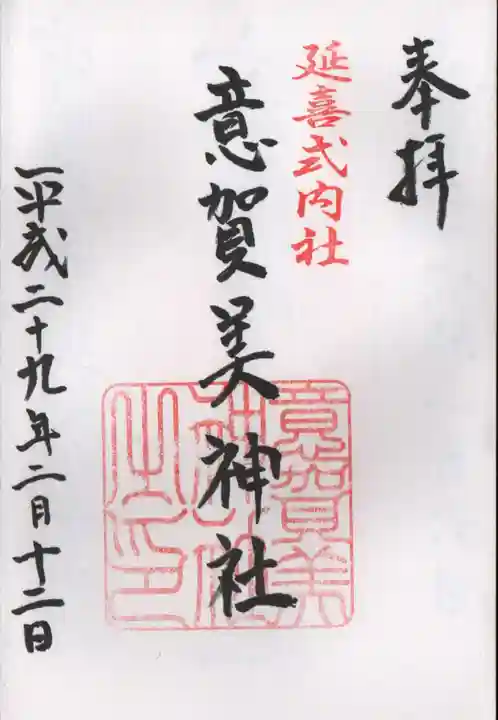 奉拝
延喜式内社
意賀美神社
平成二十九年二月十二日
意賀美
神社
之印